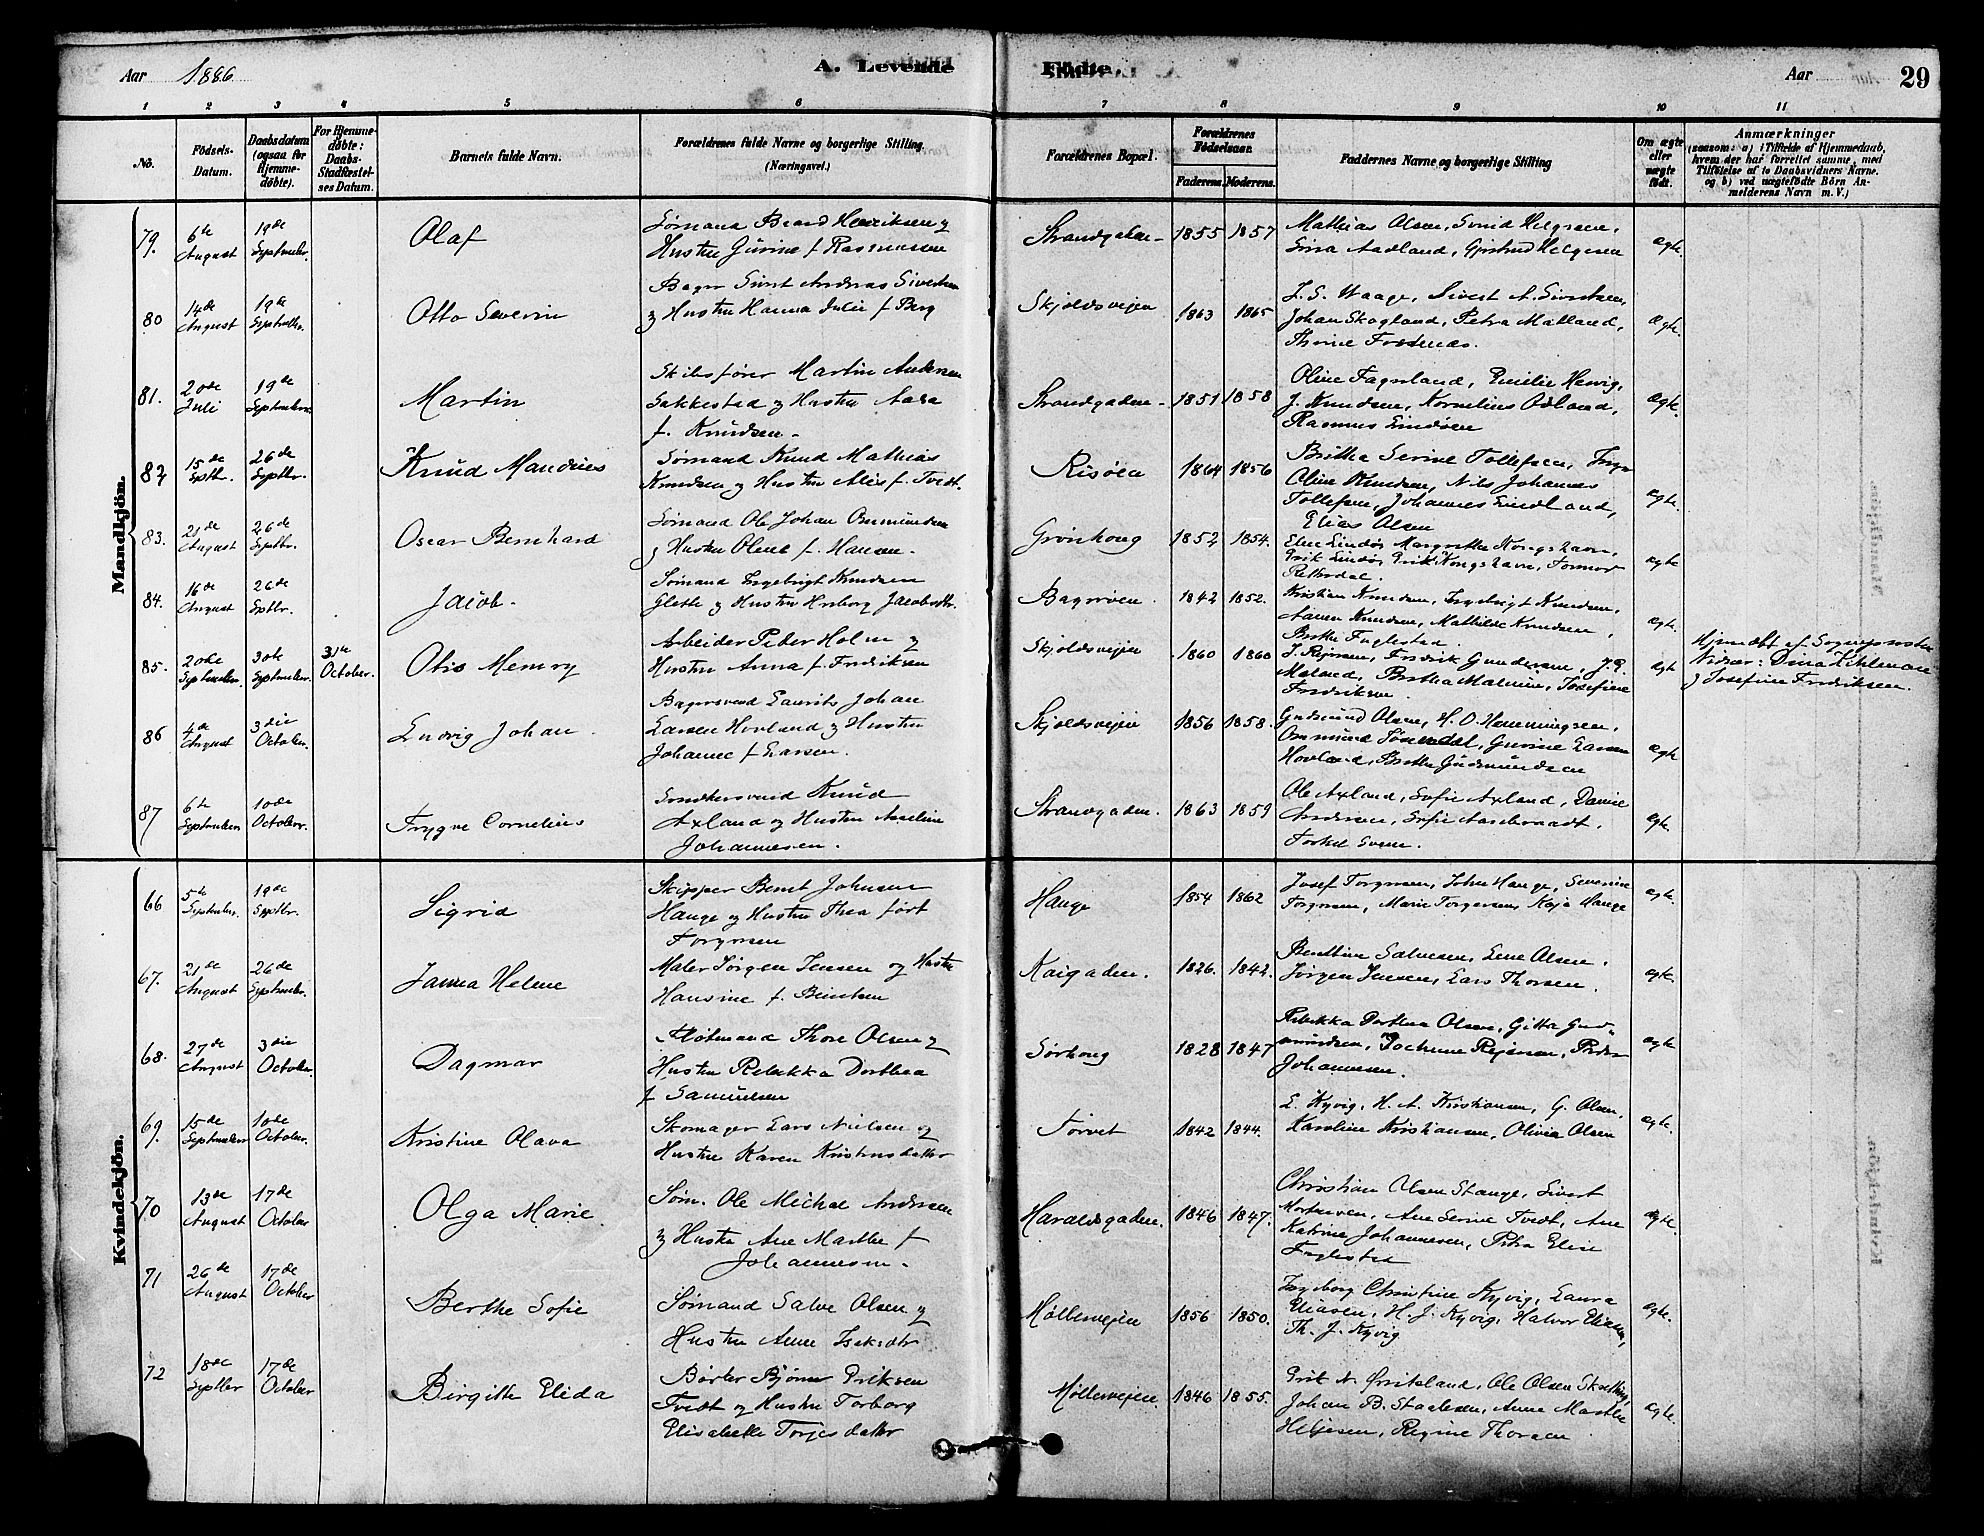 Aar 1886.
A. Levende Födte.
Aar
29
1 2 3 4 5 6 7 8 9 10 11
No.
Födsels-Datum.
Daabsdatum (ogsaa for Hjemme-döbte).
For Hjemme-döbte: Daabs-Stadfæstel-ses Datum.
Barnets fulde Navn.
Forældrenes fulde Navne og borgerlige Stilling (Næringsvei.)
Forældrenes Bopæl.
Forældrenes Födselsaar.
Faderens. Moderens.
Faddernes Navne og borgerlige Stilling
Om ægte eller uægte födt.
Anmærkninger
(saasom: a) i Tilfælde af Hjemmedaab, hvem der har forrettet samme, med Tilföielse af to Daabsvidners Navne, og b) ved uægtefödte Börn Anmelderens Navn m. V.)
Mandkjön.
79. 6te August 19de September.
Olaf
Sømand Beard Henriksen og
Hustru Jurine f. Rasmussen
Strandgaden 1855 1857
Mathias Olsen,
Aadland, Gjertrud Helgesen
ægte.
80 14de August 19de Septbr.
Otto Severin
Bager Sivert Andreas Sivertsen
og Hustru Hanna Julie f. Berg
Skjoldsvejen 1863 1865
L. S. Waage, Sivert A. Sivertsen,
Johan Skogland, Petra Matland,
Thrine
ægte.
81. 20de Juli 19de September.
Martin
Skibsfører Martin Andersen
Sakkestad og Hustru Aasa
f. Knudsen
Strandgaden 1851 1858
Oline Fagerland, Emilie Hervig,
J. Knudsen, Kornelius Odland,
Rasmus Lindøen
ægte.
82 15de Septbr. 26de Septbr.
Knud Mandrius
Sømand Knud Mathias
Knudsen og Hustru Alis f. Tvedt.
Risøen 1864 1856
Britha Serine Tollefsen,
Oline Knudsen, Nils Johannes
Tollefsen, Johannes Lindland,
Elias Olsen
ægte.
83. 21de August 26de Septbr.
Oscar Bernhard
Sømand Ole Johan Osmundsen
og Hustru Oline f. Hansen.
Grønhoug 1852 1854.
Eline Lindø, Margrethe Kongshavn,
Erik Lindø, Erik Kongshavn, Tormod
Rettedal.
ægte
84. 16de August 26de Sptbr.
Jacob.
Sømand Ingebrigt Knudsen
Glette og Hustru Herborg Jacobsdtr.
Bagerøen. 1842 1852.
Kristian Knudsen, Ingebrigt Knudsen,
Aanen Knudsen, Mathilde Knudsen,
Berthe Fuglestad.
ægte.
85. 20de September 30te September. 31te October.
Otis Memry
Arbeider Peter Holm og
Hustru Anna f. Fredriksen
Skjoldsvejen 1860 1860
J. Rejersen, Fredrik Gundersen, J. P.
Matland, Bertha Malmin, Josefine
Fredriksen.
ægte
Hjemdøbt af Sognepresten
Vidner: Dina
og Josefine Fredriksen.
86 4de August 3die October.
Ludvig Johan.
Bagersvend Laurits Johan
Larsen Hovland og Hustru
Johanne f. Larsen.
Skjoldsvejen 1856 1858.
Gudmund Olsen, H. O. Hemmingsen,
Ommund Jøsendal, Gurine Larsen
Hovland, Berthe Gudmundsen
ægte
87 6te September 10de October.
Trygve Cornelius
Snedkersvend Knud
Axland og Hustru Anseline
Johannesen.
Strandgaden. 1863 1859
Ole Axland, Sofie Axland, Daniel
Andersen, Sofie Aanderaadt,
Torkel Svensen.
ægte.
Kvindekjön.
66 5te September. 19de Septbr.
Sigrid
Skipper Bernt Johnsen
Hauge og Hustru Thea født
Torgersen
Hauge 1854 1862
Josef Torgersen, John Hauge, Severine
Torgersen, Marie Torgersen, Kaja Hauge
ægte.
67. 21de August 26de September.
Janna Helene
Maler Jørgen Jensen og Hustru
Hansine f. Berntsen
Kaigaden. 1826. 1842.
Berthine Salvesen, Lene Olsen.
Jørgen Jensen, Lars Thorsen.
ægte.
68. 27de August 3die October.
Dagmar
Flotmand Thore Olsen og
Hustru Rebekka Dorthea
f. Samuelsen
Sørhoug 1828 1847
Rebekka Dorthea Olsen, Gitta Gud-
mundsen, Jochime Rejersen, Peder
Johannesen.
ægte
69. 15de September 10de October.
Kristine Olava
Skomager Lars Nielsen og
Hustru Karen Kristensdatter
Torvet 1842 1844.
L. Kyvig, H. A. Kristiansen, G. Olsen,
Karoline Kristiansen, Olivia Olsen
ægte.
70 13de August 17de October
Olga Marie
Søm. Ole Michal Andersen
og Hustru Ane Marthe f.
Johannesen.
Haraldsgaden. 1846 1847.
Christian Olsen Stange, Sivert
Mortensen, Ane Serine Tvedt, Ane
Katrine Johannesen, Petra Elise
Fuglestad
ægte.
71 26de August 17de October
Berthe Sofie
Sømand Salve Olsen og
Hustru Anne Isaksdtr
Møllervejen 1856 1850.
Ingeborg Christine Kyvig, Laura
Eliasen, H. J. Kyvig, Halvor Eliasen,
Th. J. Kyvig
ægte.
72 18de Septber 17de October
Birgitte Elida
Bødker Bjørn Eriksen
Tvedt og Hustru Torborg
Elisabethe Torjesdatter
Møllervejen. 1846 1855.
Erik N. Ørsteland, Ole Olsen
Johan B. Staalesen, Anne Marthe
Helgesen, Regine Thorsen
ægte.